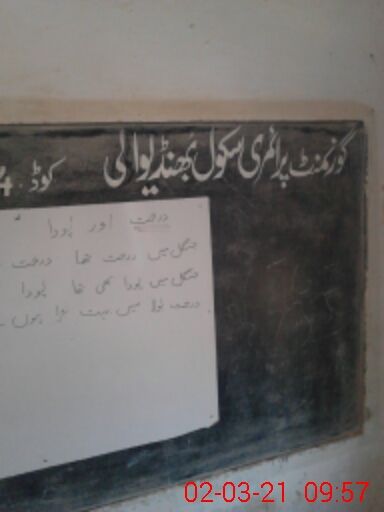 گورنمنٹ پرائمری سکول بھنڈیوالی کوڈ
درخت اور پودا
جنگل میں درخت تھا درخت
جنگل میں پودا بھی تھا پودا
درخت بولا میں بہت بڑا ہوں
02-03-21 09:57